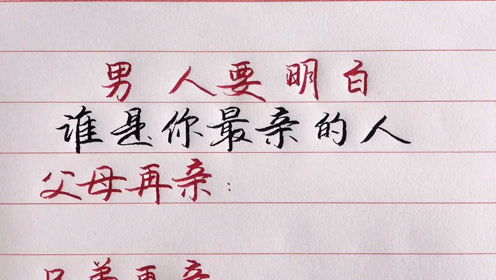 男人要明白
谁是你最亲的人
父母再亲：
兄弟再亲